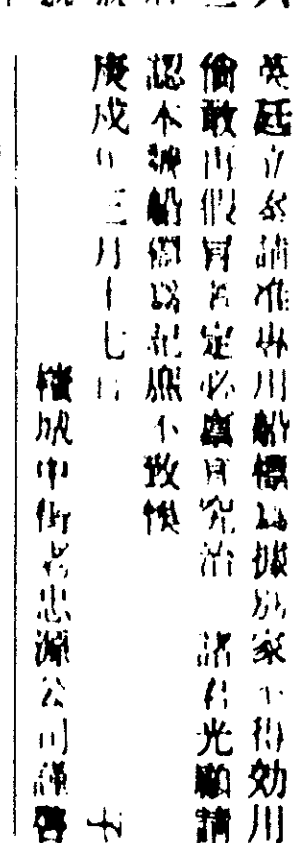 英廷立案請准專用船標為據別家不得効用
倘敢再假冒者定必稟官究治 諸君光顧請
認本號船標為記庶不致悞
庚戌年三月十七日
檳城中街老忠源公司謹啓